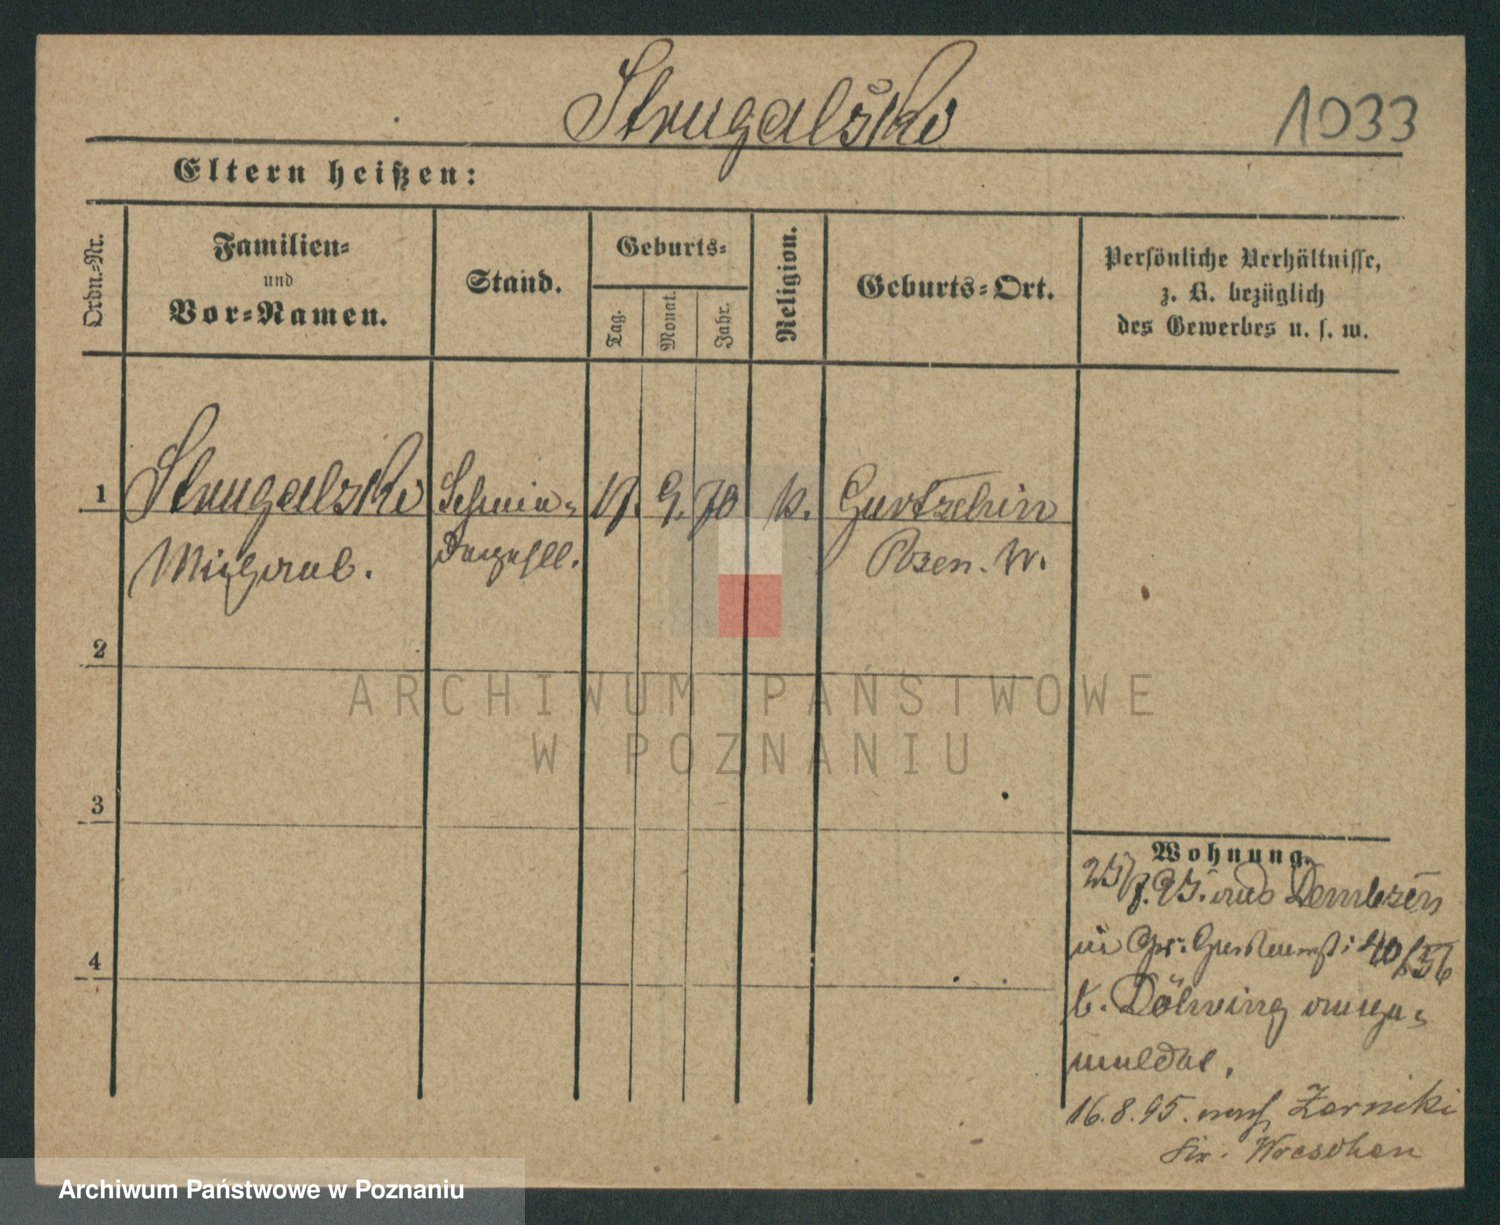 Strugalski
1033
Eltern heißen:
Ordn.-Nr.
Familien-
und
Vor-Namen.
Stand.
Geburts-
Tag.
Monat.
Jahr.
Religion.
Geburts-Ort.
Persönliche Verhältnisse,
z. B. bezüglich
des Gewerbes u. s. w.
1
Strugalski
Michael.
Schmie-
degesell.
17. 9. 70
k.
Gurtschin
Posen. W.
2
3
4
Wohnung.
25/7. 95. aus Dembsen
in Gr. 40/56
b. Döhring ange-
meldet.
16.8.95. nach Zerniki
Kr. Wreschen
ARCHIWUM PAŃSTWOWE
W POZNANIU
Archiwum Państwowe w Poznaniu